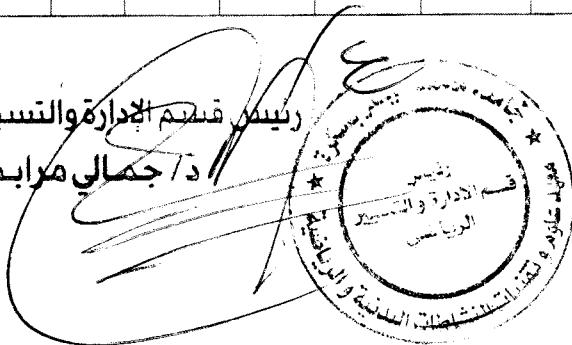 رئيس قسم الإدارة والتسي
د/ جمالي مراب
جامعة محمد خيضر بسكرة
معهد علوم و تقنيات النشاطات البدنية و الرياضية
رئيس
قسم الإدارة و التسيير
الرياضي